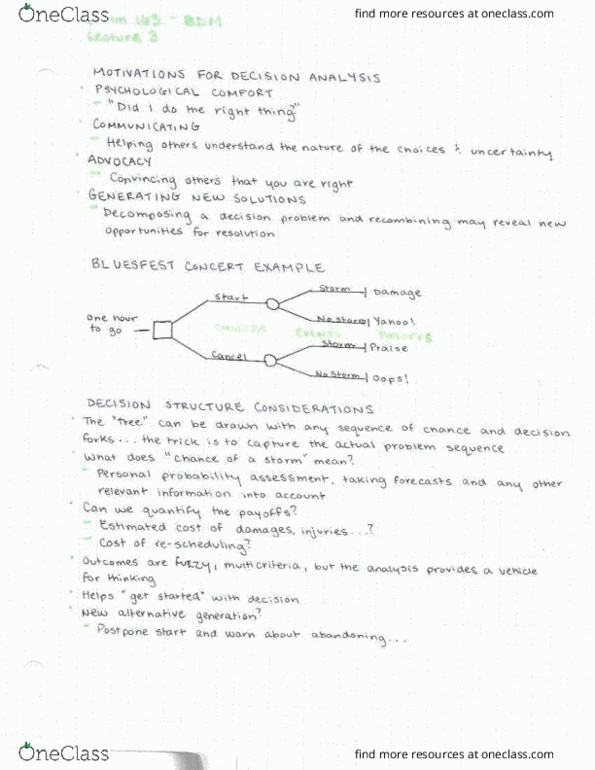 OneClass
find more resources at oneclass.com
BDM
Lecture 3
MOTIVATIONS FOR DECISION ANALYSIS
PSYCHOLOGICAL COMFORT
"Did I do the right thing?"
COMMUNICATING
Helping others understand the nature of the choices & uncertainty
ADVOCACY
Convincing others that you are right
GENERATING NEW SOLUTIONS
Decomposing a decision problem and recombining may reveal new
opportunities for resolution
BLUESFEST CONCERT EXAMPLE
One hour
to go
Start
Storm
Damage
No Storm
Yahoo!
CHOICES
EVENTS
Storm
Praise
Cancel
No Storm
Oops!
DECISION STRUCTURE CONSIDERATIONS
The "tree" can be drawn with any sequence of chance and decision
forks... the trick is to capture the actual problem sequence
What does "chance of a storm" mean?
Personal probability assessment, taking forecasts and any other
relevant information into account
Can we quantify the payoffs?
Estimated cost of damages, injuries...?
Cost of re-scheduling?
Outcomes are fuzzy, multicriteria, but the analysis provides a vehicle
for thinking
Helps "get started" with decision
New alternative generation?
Postpone start and warn about abandoning...
OneClass
find more resources at oneclass.com